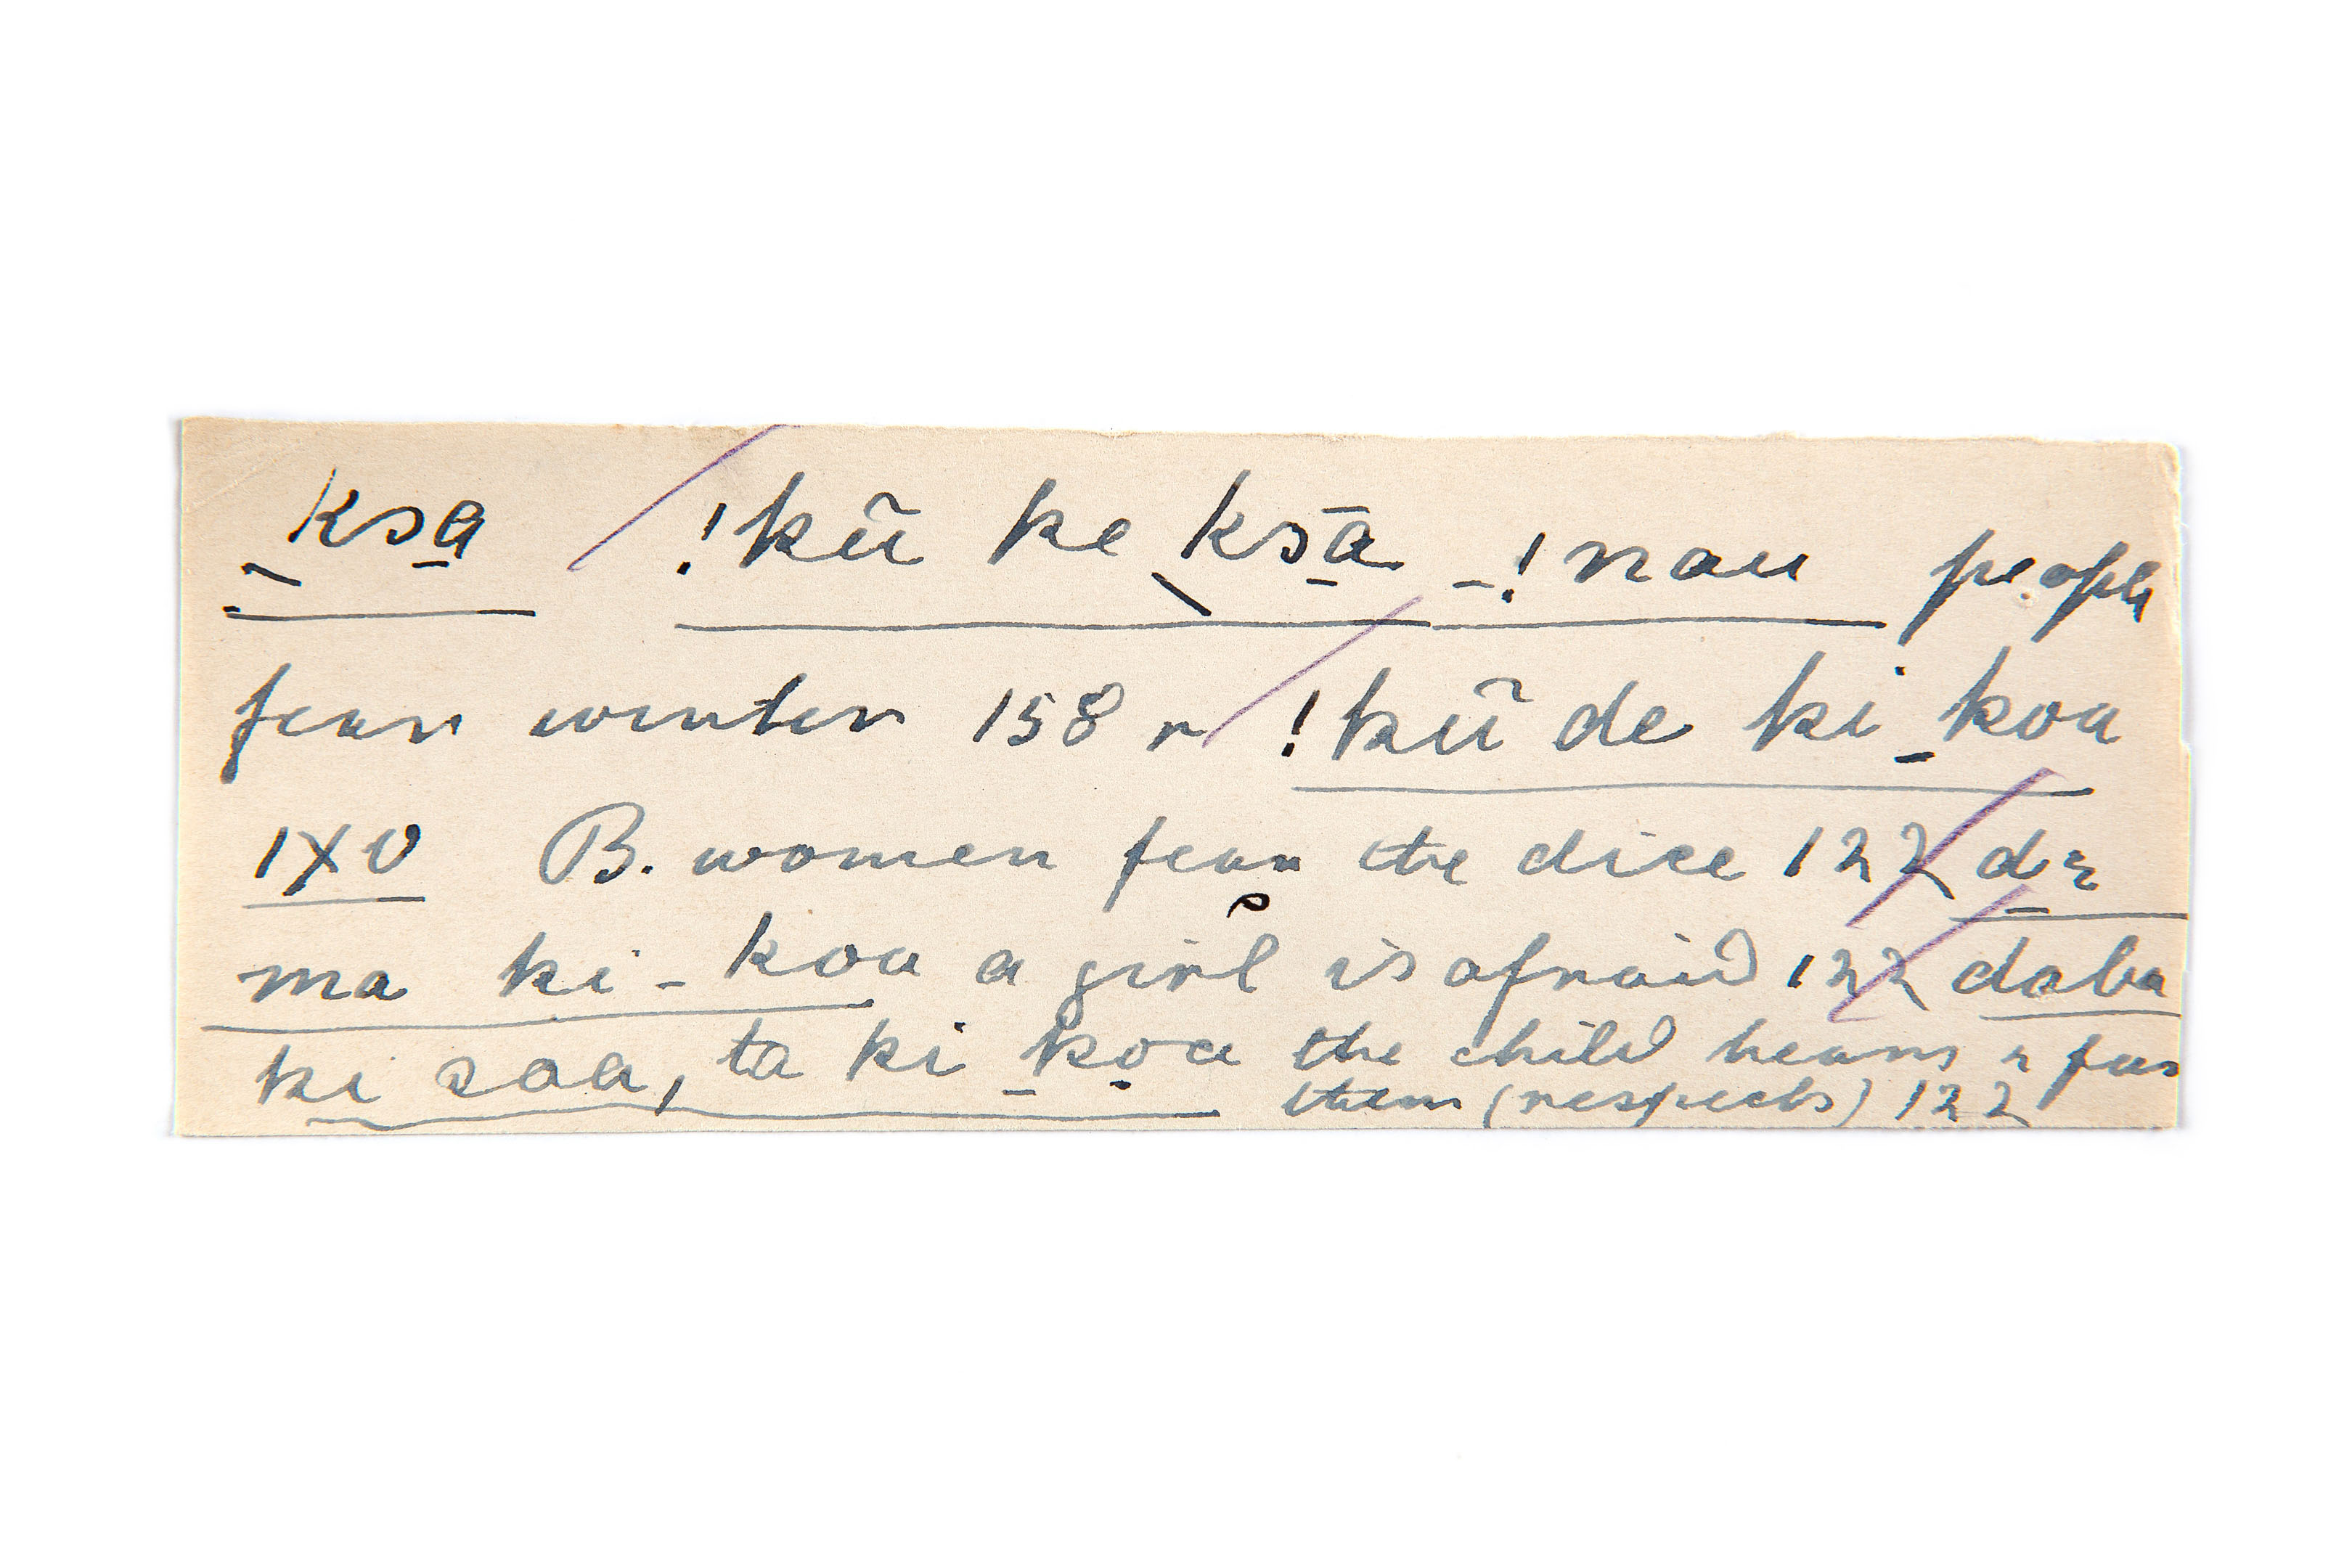 ksa̱ / !kũ ke ksā̱ _!nau people
fear winter 158 r / !kũ de ki _koa
ıχo B. women fear the dice 122 / dɛ
ma ki - koa a girl is afraid 122 / daba
ki saa, ta ki _ kọa the child hears & fears
them (respects) 122